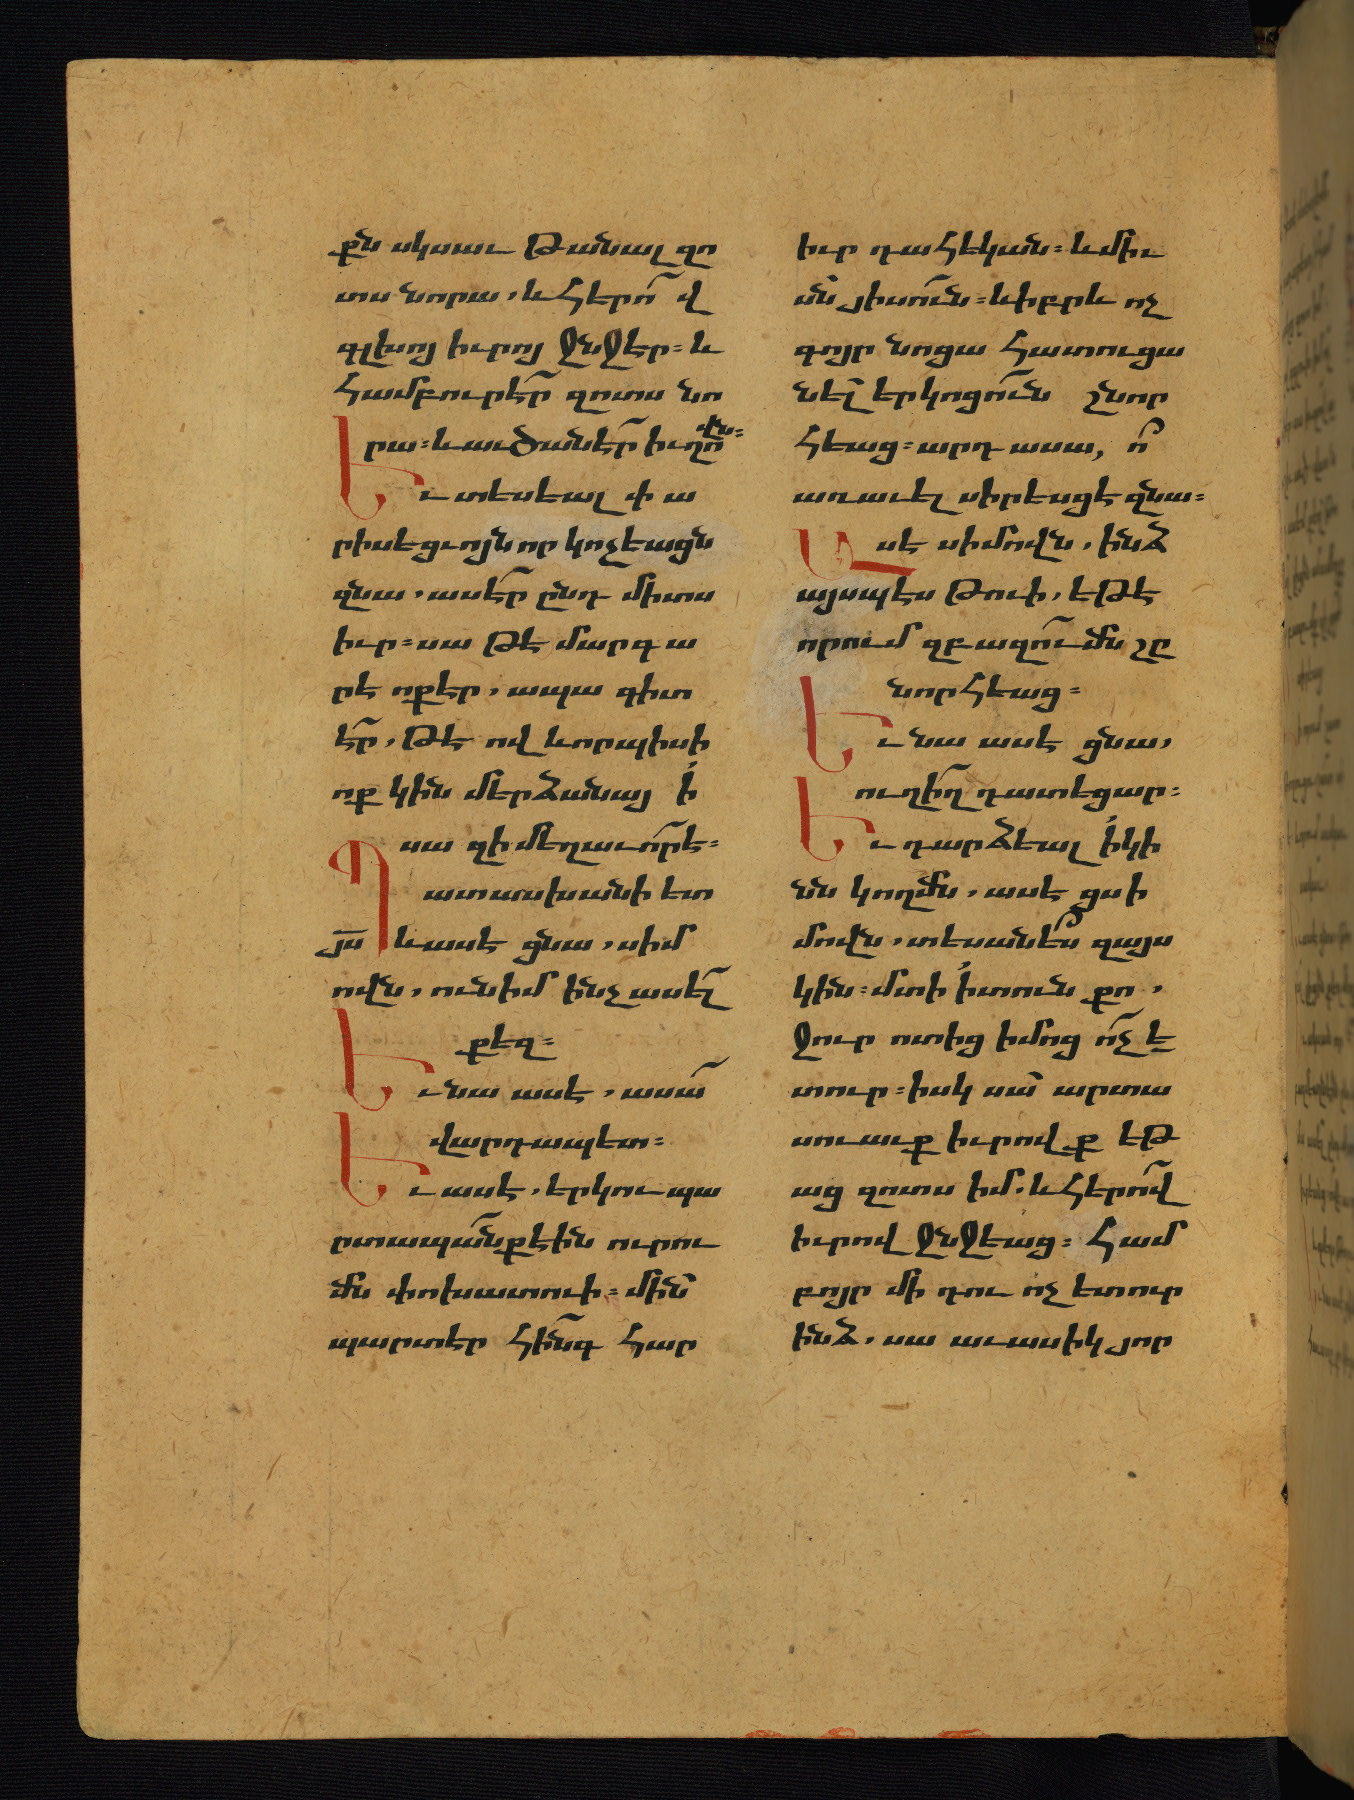 քն սկսաւ թանալ զո
տս նորա, և հերո՜վ
գլխոյ իւրոյ ջնջէր։ և
համբուրէ՜ր զոտս նո
րա։ և աւծանէ՜ր իւղո՜
վն։
Եւ տեսեալ փա
րիսեցւոյն որ կոչեացն
զնա, ասէ՜ր ընդ միտս
իւր։ սա թէ մարգա
րէ ոք էր, ապա գիտ
է՜ր, թէ ով և որպիսի
ոք կին մերձանայ ի
սա զի մեղաւո՜ր է։
Պատասխանի ետ
յս և ասէ ցնա, սիմ
ովն, ունիմ ինչ ասե՜լ
քեզ։
Եւ նա ասէ, ասա՜
վարդապետ։
Եւ ասէ, երկու պա
րտապա՜նք էին ուրու
մն փոխատուի։ մին
պարտէր հի՜նգ հար
իւր դահեկան։ և միւ
սն յիսո՜ւն։ և իբրև ոչ
գոյր նոցա հատուցա
նել երկոցո՜ւն շնոր
հեաց։ արդ ասա, ո՜
առաւել սիրեսցէ զնա։
Ասէ սիմովն, ինձ
այսպէս թուի, եթէ
որում զբազո՜ւմն շը
նորհեաց։
Եւ նա ասէ ցնա,
ուղի՜ղ դատեցար։
Եւ դարձեալ ի կի
նն կողմն, ասէ ցսի
մովն, տեսանե՞ս զայս
կին։ մտի ի տուն քո,
ջուր ոտից իմոց ո՜չ ե
տուր։ իսկ սա արտա
սուաւք իւրովք եթ
աց զոտս իմ. և հերո՜վ
իւրով ջնջեաց։ համ
բոյր մի դու ոչ ետուր
ինձ, սա աւասիկ յոր